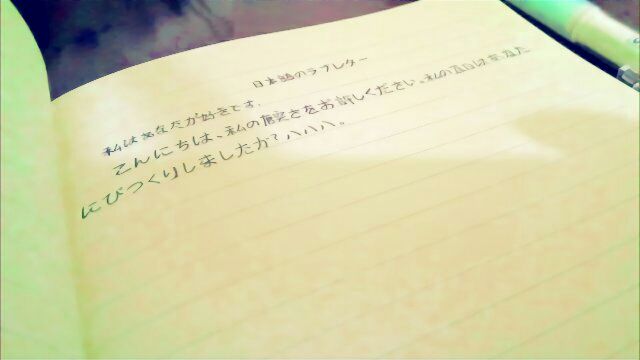 日本語のラブレター
私はあなたが好きです.
こんにちは、私の唐突さをお許しください。私の告白はあなた
にびっくりしましたか？ハハハ。